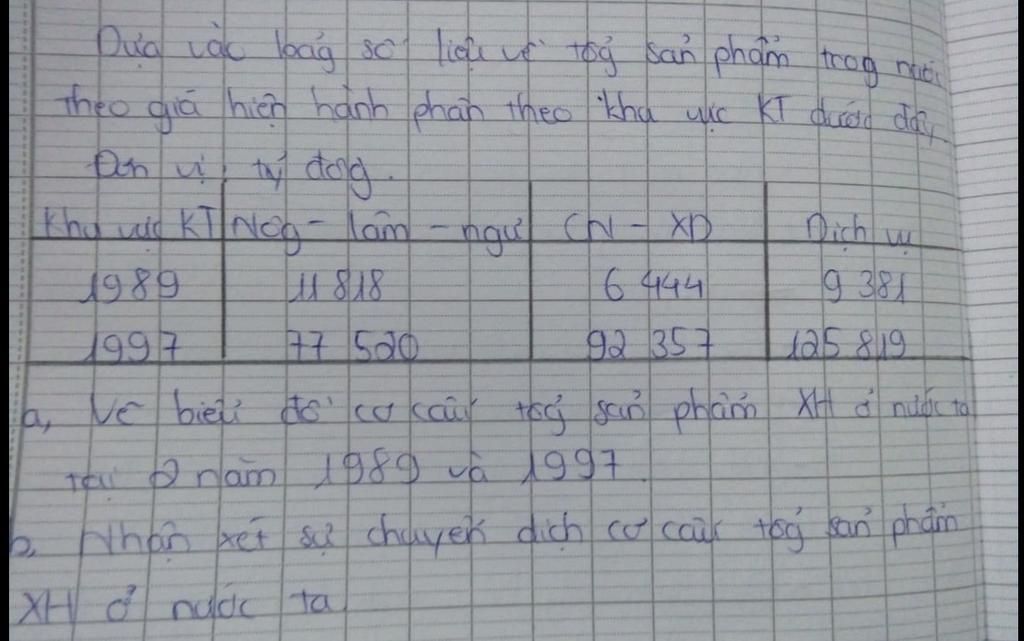 Dựa vào bảg số liệu về tổg sản phẩm trog nước
theo giá hiện hành phân theo khu vực KT dưới đây
Đơn vị, tỷ đồg.
Khu vực KT Nôg - lâm - ngư CN - XD Dịch vụ
1989 11 818 6 444 9 381
1997 77 520 92 357 125 819
a, Vẽ biểu đồ cơ cấu tổg sản phẩm XH ở nước ta
tại 2 năm 1989 và 1997.
b, Nhận xét sự chuyển dịch cơ cấu tổg sản phẩm
XH ở nước ta